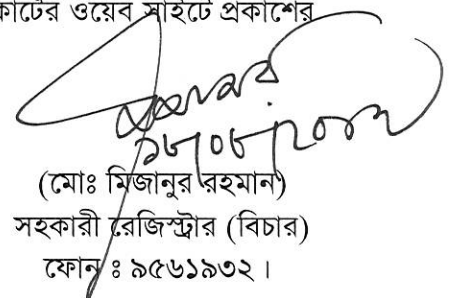 কোর্টের ওয়েব সাইটে প্রকাশের
(মোঃ মিজানুর রহমান)
সহকারী রেজিস্ট্রার (বিচার)
ফোন ঃ ৯৫৬১৯৩২।